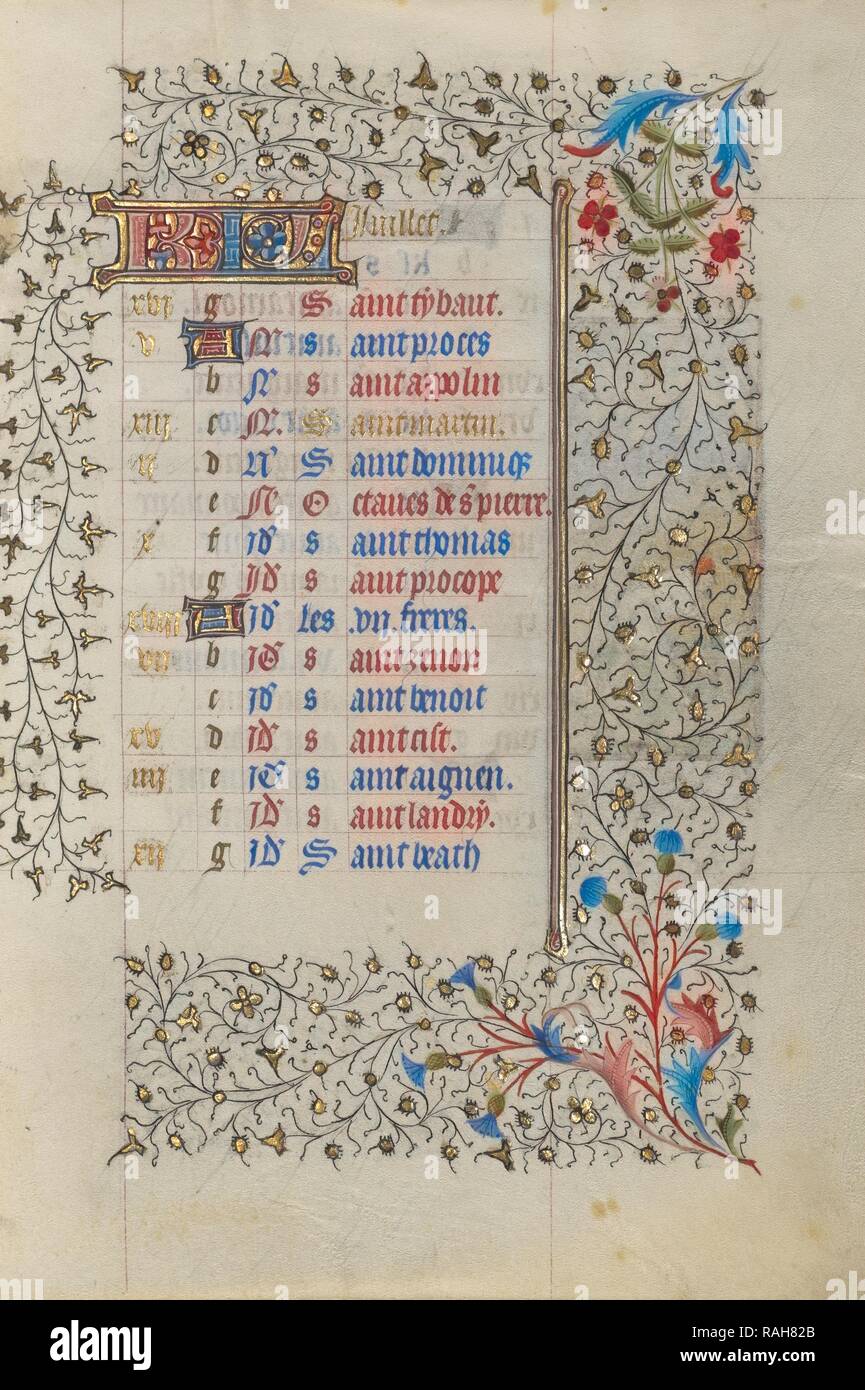 KL Juillet.
xvi g Saint tybaut.
v A N saint proces
b N s aint apolin
xiii c N Saint martin.
ii d N Saint dominiq̄
e N Octaues de s̄ pierre.
x f id s aint thomas
g id s aint procope
xviii A id les .vii. freres.
vii b id s aint zenon
c id s aint benoit
xv d id s aint cist.
iiii e id s aint aignen.
f id s aint landry.
xii g id Saint
alamy
Image ID: RAH82B
www.alamy.com